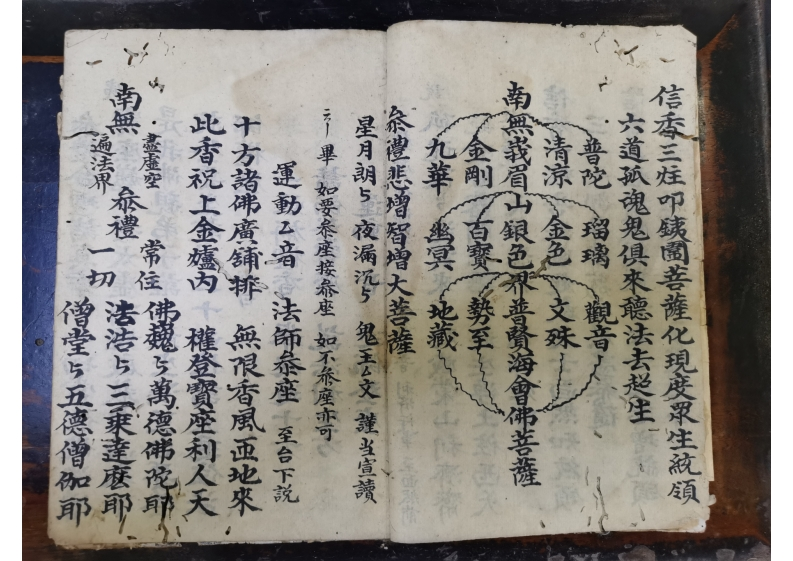 信香三炷叩銕圍菩薩化現度眾生統領
六道孤魂鬼俱來聽法去超生
普陀 瑠璃 觀音
清涼 金色 文殊
南無峩眉山銀色界普賢海會佛菩薩
金剛 百寶 勢至
九華 幽冥 地藏
叅禮悲增智增大菩薩
星月朗々夜漏沉々 鬼王厶文 謹当宣讀
畢 如要叅座接叅座 如不叅座亦可
運動乙音 法師叅座 至台下説
十方諸佛廣鋪排 無限香風匝地來
此香祝上金爐内 權登寶座利人天
南無
盡虛空
遍法界
叅禮
常住
一切
佛巍々萬德佛陀耶
法浩々三乘達麽耶
僧堂々五德僧伽耶